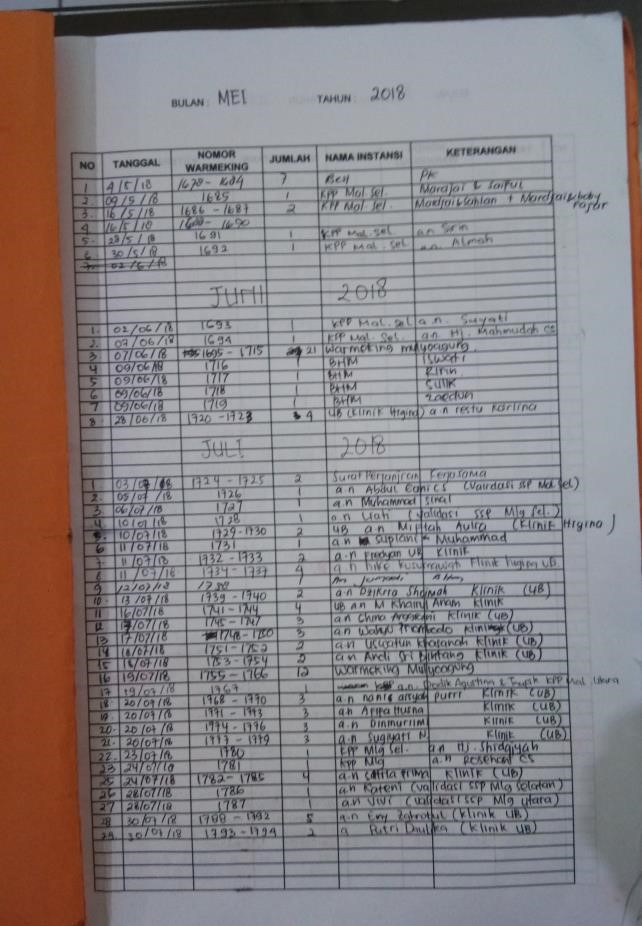 BULAN : MEI TAHUN : 2018
NO TANGGAL NOMOR WARMEKING JUMLAH NAMA INSTANSI KETERANGAN
1 4/5/18 1678 - 1684 7 BCA
2. 09/5/18 1685 1 KPP Mal Sel. Marajai & Saiful
3. 16/5/18 1686 - 1687 2 KPP Mal Sel.
4 16/5/18 - 1690
5. 28/5/18 1691 1 KPP Mal. Sel a.n
6 30/5/18 1692 1 KPP Mal. Sel a.n. Almah
7. 02/6/18
JUNI 2018
1. 02/06/18 1693 1 KPP Mal. Sel a.n. Suyati
2. 07/06/18 1694 1 KPP Mal. Sel. a.n. Hj. Mahmudah cs
3 07/06/18 1695 - 1715 21 Warmeking mulyoagung
4 09/06/18 1716 1 BHM Iswati
5 09/06/18 1717 1 BHM Ririn
6 09/06/18 1718 1 BHM Sulik
7 09/06/18 1719 1 BHM
8 28/06/18 1720 - 1723 4 UB (Klinik Higina) a n restu Karlina
JULI 2018
1 03/07/18 1724 - 1725 2 Surat Perjanjian Kerjasama
2. 05/07/18 1726 1 a.n Abdul Ganics (Validasi SSP Mal Sel)
3 06/07/18 1727 1 a.n Muhammad
4 10/07/18 1728 1 a.n Liati (Validasi SSP Mlg Sel.)
5. 10/07/18 1729 - 1730 2 UB an Miftah Aulia (Klinik Higina)
6 11/07/18 1731 1 an Supiani - Muhammad
7. 11/07/18 1732 - 1733 2 a.n UB Klinik
8 11/07/18 1734 - 1737 4 a n
9 12/07/18 1738 1
10. 13/07/18 1739 - 1740 2 a n Dzikria Klinik (UB)
11 16/07/18 1741 - 1744 4 UB an M Khairul Anam Klinik
12 17/07/18 1745 - 1747 3 a n Klinik (UB)
13 17/07/18 1748 - 1750 3 a n Wahyu Klinik (UB)
14 18/07/18 1751 - 1752 2 a n Uswatun Khasanah Klinik (UB)
15 18/07/18 1753 - 1754 2 a n Andi Sri Bintang Klinik (UB)
16 19/07/18 1755 - 1766 12 Warmeking Mulyoagung
17 19/07/18 1767 1 a.n. KPP Mal Utara
18 20/07/18 1768 - 1770 3 a.n putri Klinik (UB)
19. 20/07/18 1771 - 1773 3 a.n Arifa Husna Klinik (UB)
20. 20/07/18 1774 - 1776 3 a.n Dinmurrim Klinik (UB)
21. 20/07/18 1777 - 1779 3 a.n Sugiyati N Klinik (UB)
22. 23/07/18 1780 1 KPP Mlg Sel. a n Hj. Shidqiyah
23 24/07/18 1781 1 KPP Mlg a.n cs
25 24/07/18 1782 - 1785 4 a.n Safitla Prima Klinik (UB)
26 28/07/18 1786 1 a.n Kateni (validasi SSP Mlg Selatan)
27 28/07/18 1787 1 a n Vivi (validasi SSP Mlg utara)
28 30/07/18 1788 - 1792 5 a.n Eny Zahrotul (Klinik UB)
29. 30/07/18 1793 - 1794 2 a Putri (Klinik UB)